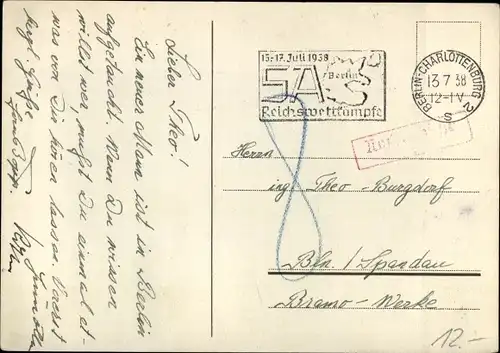 Lieber Theo!
Ein neuer Mann ist in Berlin
aufgetaucht. Wenn Du wissen
willst wer, mußt Du einmal et-
was von Dir hören lassen. Vorerst
herzl. Grüße
15.-17. Juli 1938
Berlin
SA
Reichswettkämpfe
BERLIN-CHARLOTTENBURG 2
13.7.38
12-1V
S
Herrn
ing. Theo Burgdorf
Bln./Spandau
Bramo-Werke
12.-